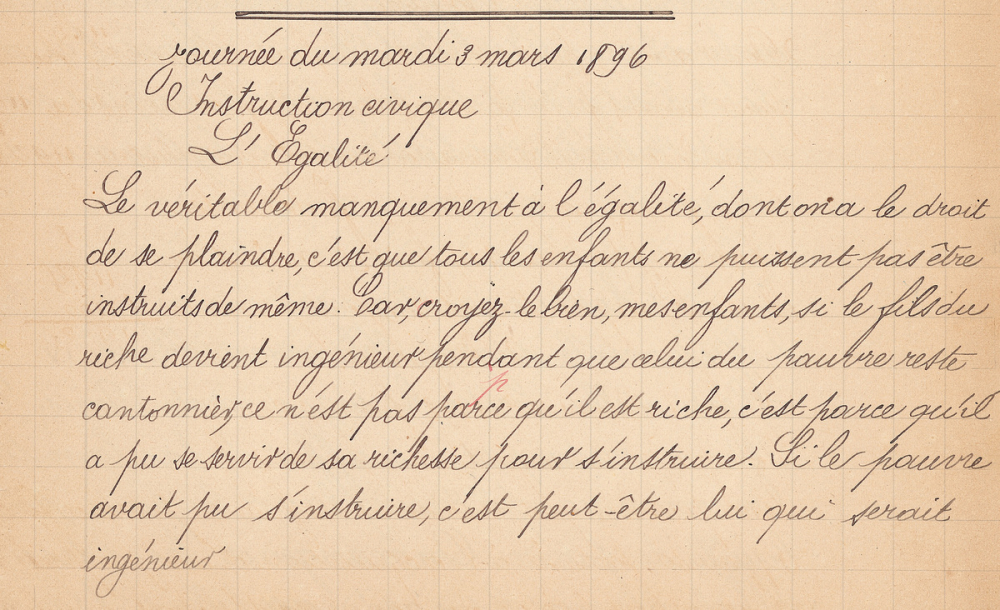 Journée du mardi 3 mars 1896
Instruction civique
L'Egalité
Le véritable manquement à l'égalité, dont on a le droit
de se plaindre, c'est que tous les enfants ne puissent pas être
instruits de même. Car, croyez-le bien, mes enfants, si le fils du
riche devient ingénieur pendant que celui du pauvre reste
cantonnier, ce n'est pas parce qu'il est riche, c'est parce qu'il
a pu se servir de sa richesse pour s'instruire. Si le pauvre
avait pu s'instruire, c'est peut-être lui qui serait
ingénieur